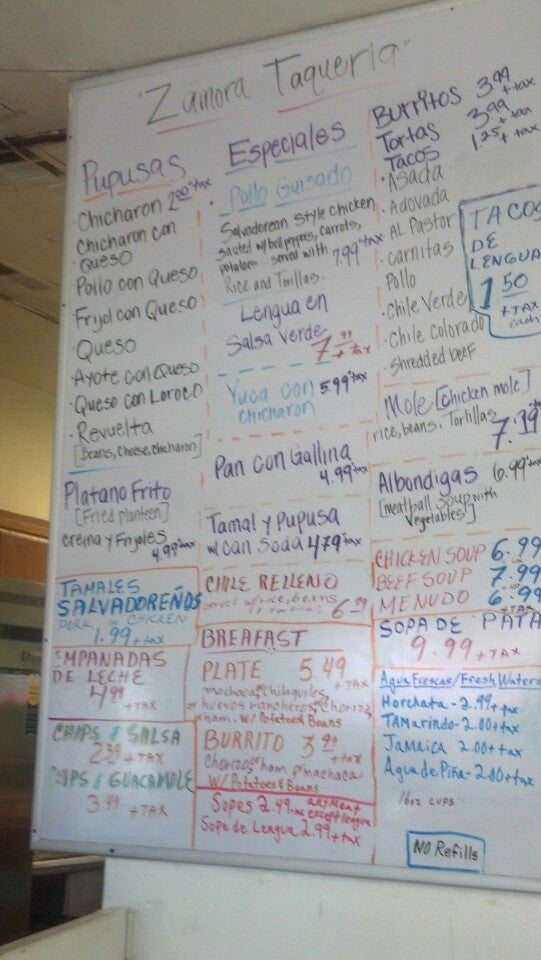 "Zamora Taqueria"
Pupusas
Chicharon 2.00+tax
Chicharon con
Queso
Pollo con Queso
Frijol con Queso
·Queso
·Ayote con Queso
·Queso con Loroco
·Revuelta
[Beans, Cheese, chicharon]
Platano Frito
[Fried planteen]
crema y Frijoles
4.99+tax
TAMALES
SALVADOREÑOS
PORK OR CHICKEN
1.99+tax
EMPANADAS
DE LECHE
4.99
+TAX
CHIPS & SALSA
2.39+TAX
CHIPS & GUACAMOLE
3.99 +TAX
Especiales
·Pollo Guisado
Salvadorean Style Chicken
sauted w/bell peppers, carrots,
potatoes. served with 7.99+tax
Rice and Tortillas.
Lengua en
Salsa Verde
7.99+tax
Yuca con 5.99+tax
chicharon
Pan con Gallina
4.99+tax
Tamal y Pupusa
w/can Soda 4.79+tax
CHILE RELLENO
served w/rice, beans
6.99
BREAFAST
PLATE 5.49
+TAX
machaca, chilaquiles,
or huevos rancheros, chorizo,
or ham. w/Potatoes & Beans
BURRITO 3.99
+tax
Chorizo, ham, machaca
W/Potatoes & Beans
Sopes 2.49+tax any meat except lengua
Sope de Lengua 2.99+tax
Burritos 3.99+tax
Tortas 3.99+tax
Tacos 1.25+tax
·Asada
·Adovada
·AL Pastor
·carnitas
Pollo
·Chile Verde
·Chile Colorado
·Shredded beef
TACOS
DE
LENGUA
1.50
+TAX
cash
Mole [chicken mole]
rice, beans, Tortillas
7.99+tax
Albondigas 6.99+tax
[meatball soup with
vegetables]
CHICKEN SOUP 6.99
BEEF SOUP 7.99
MENUDO 6.99
+TAX
SOPA DE PATA
9.99+TAX
Agua Frescas/Fresh Waters
Horchata - 2.99+tax
TAMarindo - 2.00+tax
JAMAICA 2.00+tax
Agua de Piña - 2.00+tax
16oz cups
NO Refills